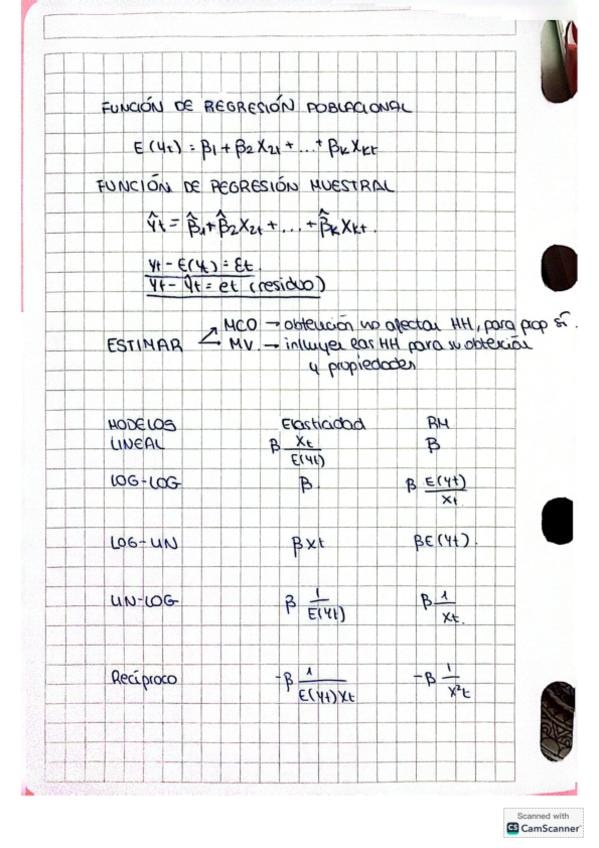 FUNCIÓN DE REGRESIÓN POBLACIONAL
E(yt) = β1 + β2 X2t + ... + βk Xkt
FUNCIÓN DE REGRESIÓN MUESTRAL
ŷt = β̂1 + β̂2 X2t + ... + β̂k Xkt.
yt - E(yt) = Ɛt.
yt - ŷt = et (residuo)
MCO → obtención no afectan HH, para prop sí.
ESTIMAR
MV. → influyen las HH para su obtención
y propiedades
MODELOS Elasticidad RM
LINEAL β Xt / E(yt) β
LOG-LOG β. β E(yt) / Xt
LOG-LIN βxt βE(yt).
LIN-LOG β 1 / E(yt) β 1 / Xt.
Recíproco -β 1 / E(yt)Xt -β 1 / X²t
Scanned with
CS CamScanner